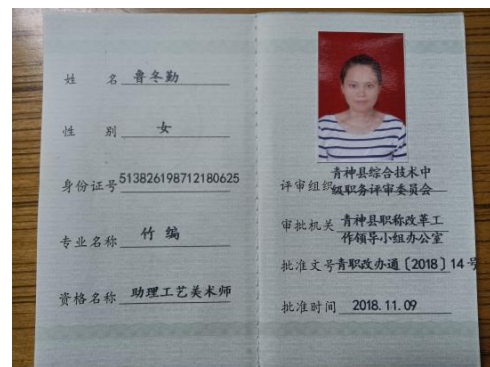 姓 名 鲁冬勤
性 别 女
身份证号 513826198712180625
专业名称 竹编
资格名称 助理工艺美术师
评审组织 青神县综合技术中
级职务评审委员会
审批机关 青神县职称改革工
作领导小组办公室
批准文号 青职改办通〔2018〕14号
批准时间 2018.11.09